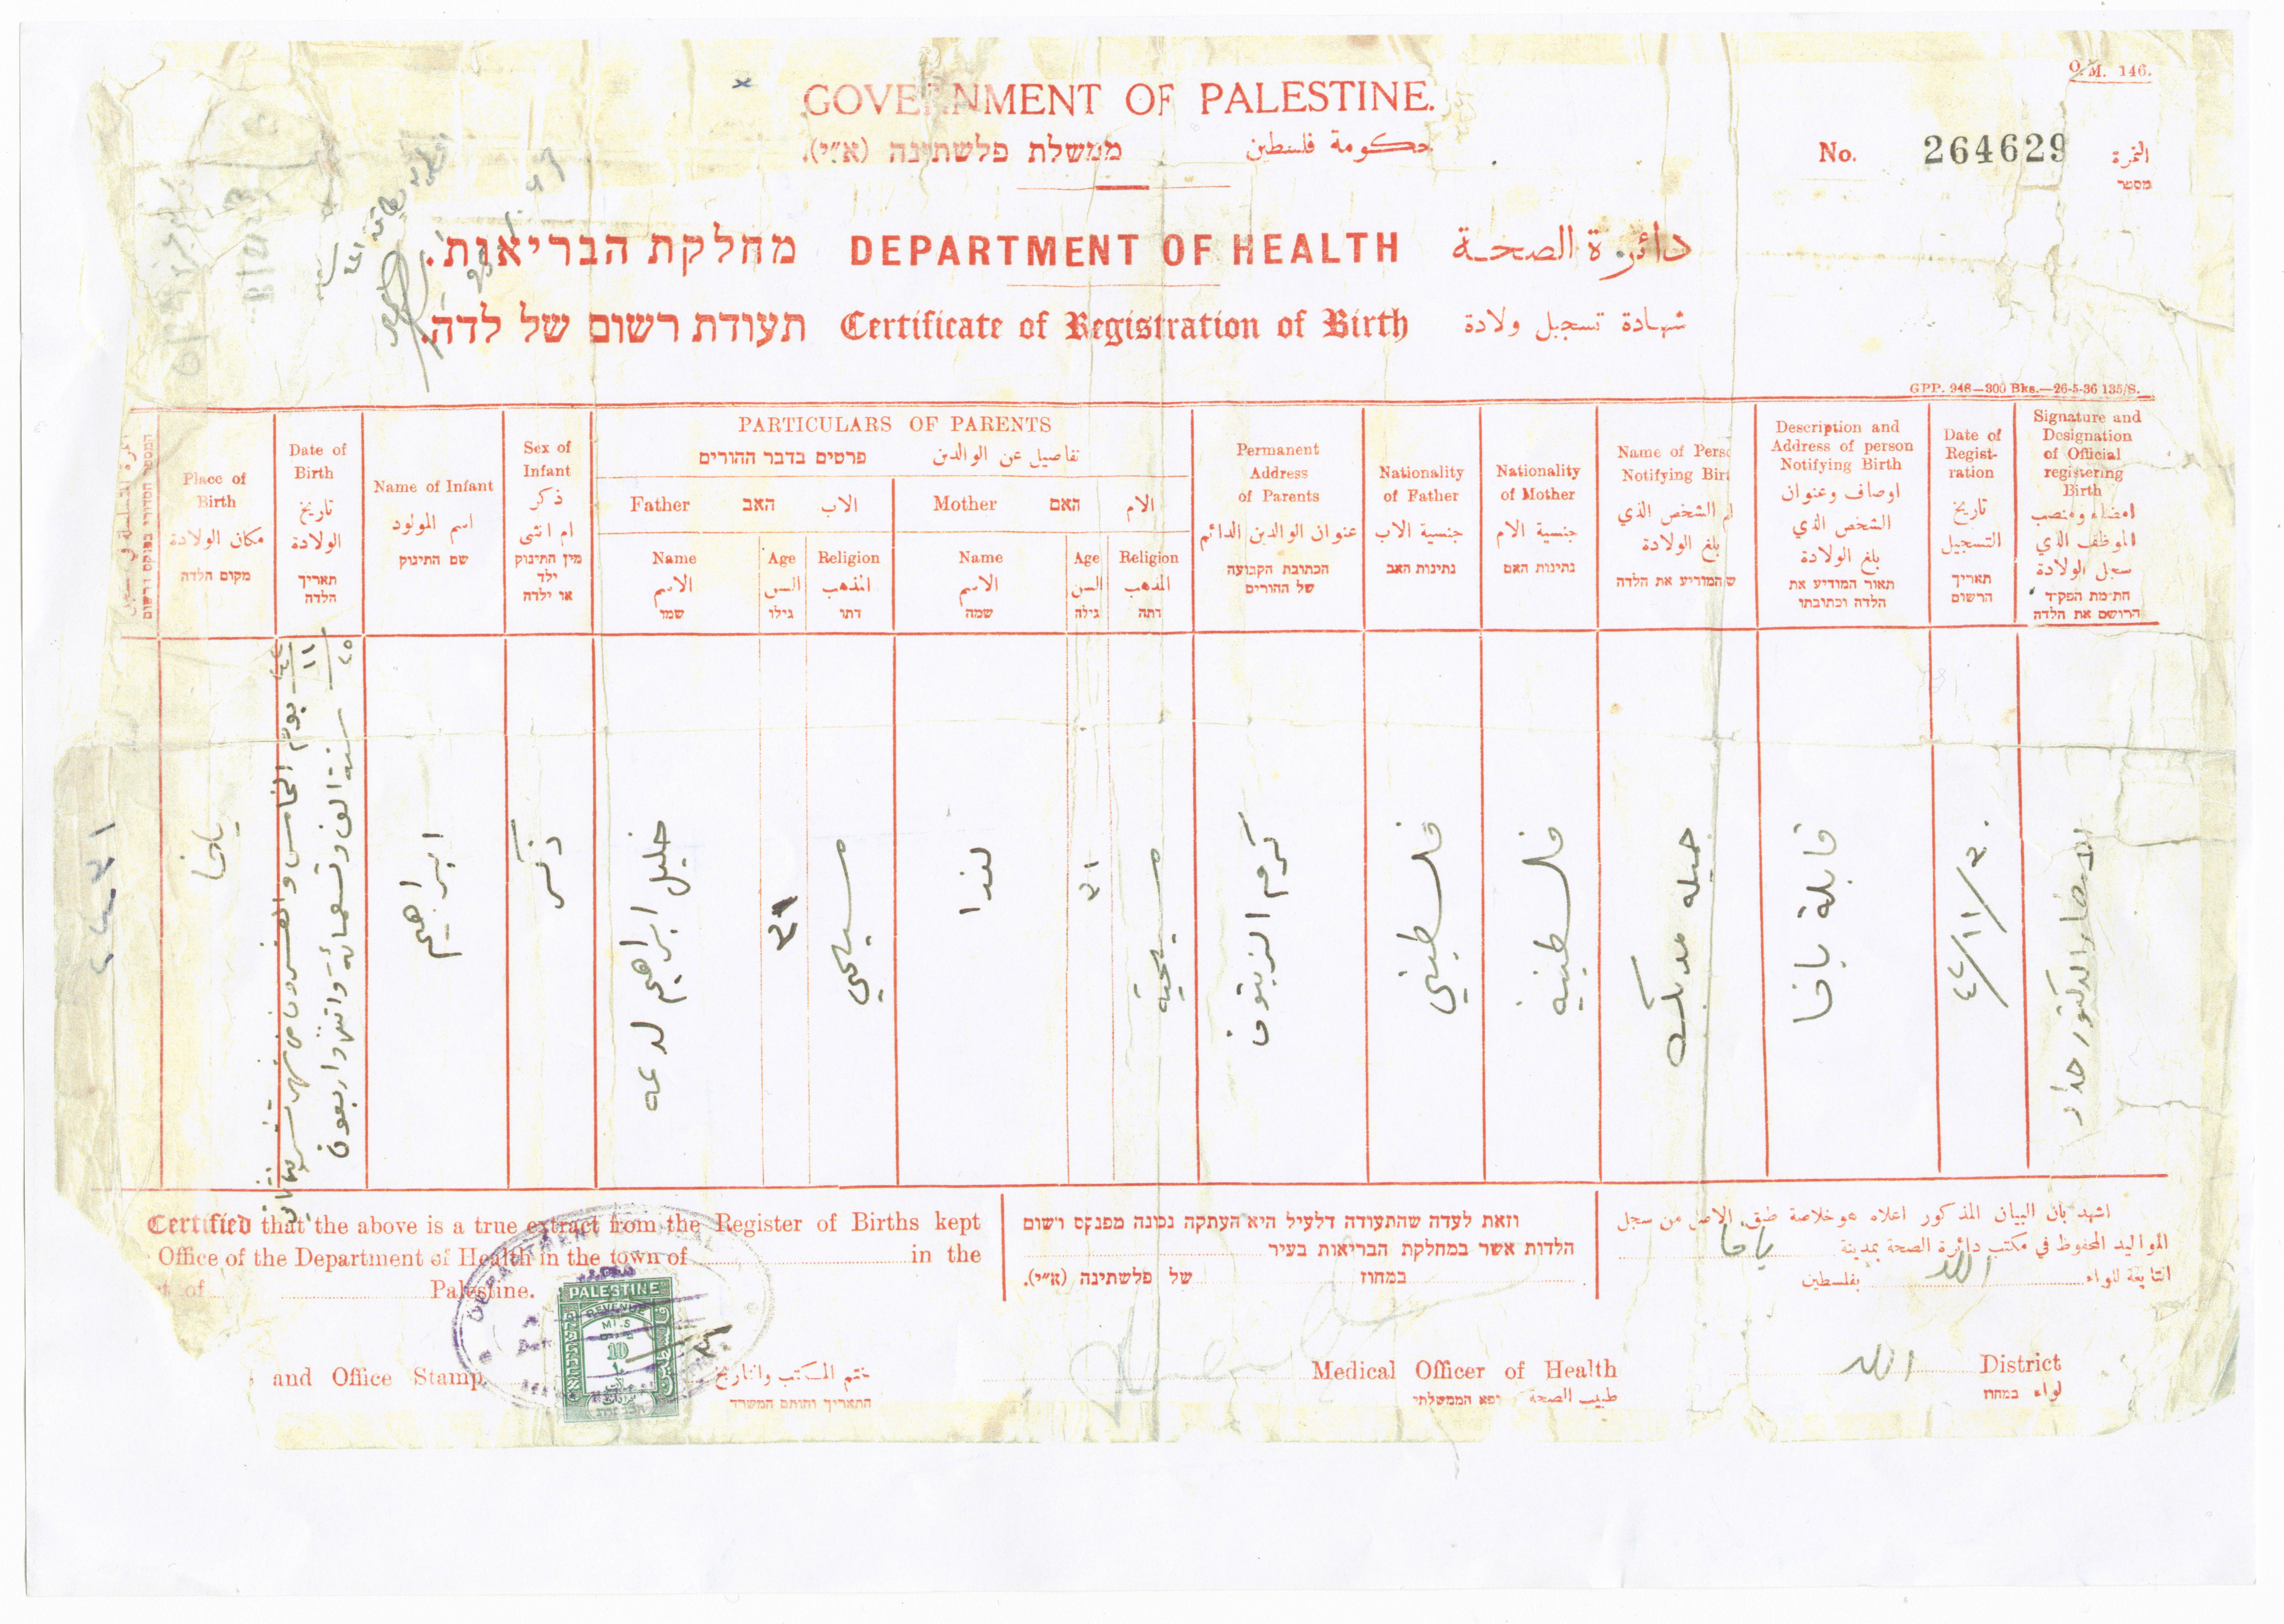 O.M. 146.
GOVERNMENT OF PALESTINE.
ממשלת פלשתינה (א״י). حكومة فلسطين
No. 264629 النمرة
מספר
מחלקת הבריאות. DEPARTMENT OF HEALTH دائرة الصحة
תעודת רשום של לדה. Certificate of Registration of Birth شهادة تسجيل ولادة
GPP. 948—300 Bks.—26-5-36 135/S.
המספר הסדורי בפנקס רשום
Place of Birth
مكان الولادة
מקום הלדה
Date of Birth
تاريخ الولادة
תאריך הלדה
Name of Infant
اسم المولود
שם התינוק
Sex of Infant
ذكر ام انثى
מין התינוק ילד או ילדה
PARTICULARS OF PARENTS
פרטים בדבר ההורים تفاصيل عن الوالدين
Father האב الاب
Mother האם الام
Name الاسم שמו
Age السن גילו
Religion المذهب דתו
Name الاسم שמה
Age السن גילה
Religion المذهب דתה
Permanent Address of Parents
عنوان الوالدين الدائم
הכתובת הקבועה של ההורים
Nationality of Father
جنسية الاب
נתינות האב
Nationality of Mother
جنسية الام
נתינות האם
Name of Perso
Notifying Birt
الشخص الذي
بلغ الولادة
המודיע את הלדה
Description and Address of person Notifying Birth
اوصاف وعنوان الشخص الذي بلغ الولادة
תאור המודיע את הלדה וכתובתו
Date of Regist-ration
تاريخ التسجيل
תאריך הרשום
Signature and Designation of Official registering Birth
امضاء ومنصب الموظف الذي سجل الولادة
חתימת הפקיד הרושם את הלדה
يافا
٢٥ ١١ ٤٢
يوم الخامس والعشرون من شهر تشرين ثاني
سنة الف وتسعمائة واثنين واربعون
ابراهيم
ذكر
خليل ابراهيم لدعه
٣٩
مسيحي
لندا
٣١
مسيحية
كرم الزيتون
فلسطيني
فلسطينية
جميله مدبك
قابلة يافا
٤٢/١١/٣٠
الامضاء الدكتور حداد
Certified that the above is a true extract from the Register of Births kept
Office of the Department of Health in the town of in the
of Palestine.
וזאת לעדה שהתעודה דלעיל היא העתקה נכונה מפנקס רשום
הלדות אשר במחלקת הבריאות בעיר
במחוז של פלשתינה (א״י).
اشهد بان البيان المذكور اعلاه هو خلاصة طبق الاصل من سجل
المواليد المحفوظ في مكتب دائرة الصحة بمدينة يافا
التابعة للواء اللد بفلسطين
PALESTINE
REVENUE
MILS
10
and Office Stamp ختم المكتب والتاريخ
התאריך וחותם המשרד
Medical Officer of Health
طبيب الصحة רופא הממשלתי
اللد District
لواء במחוז